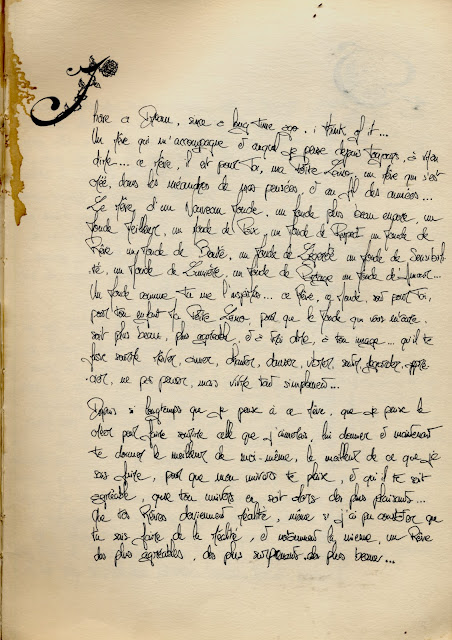 I
have a Dream, since a long time ago, i think of it...
Un rêve qui m'accompagne & auquel je pense depuis toujours, à vrai
dire... ce rêve, il est pour Toi, ma Petite, un rêve qui s'est
créé, dans les méandres de mes pensées, & au fil des années...
Le rêve, d'un Nouveau Monde, un Monde plus beau encore, un
Monde Meilleur, un Monde de Paix, un Monde de Respect, un Monde de
Rêve, un Monde de Beauté, un Monde de Légèreté, un Monde de Sensibili-
té, un Monde de Lumière, un Monde de, un Monde d'Amour...
Un Monde comme Tu me l'inspires... ce Rêve, ce Monde, est pour Toi,
pour ton enfant, ma Petite, pour que le Monde qui vous entoure
soit plus beau, plus agréable, & à Très dite, à ton image... qu'il te
fasse sourire, rêver, aimer, chanter, danser, voler, sentir, regarder, appré-
cier, ne pas penser, mais vivre tout simplement...
Depuis si longtemps que je pense à ce rêve, que je pense le
créer pour faire sourire celle que j'aimerais, lui donner & maintenant
te donner le meilleur de moi-même, le meilleur de ce que je
sais faire, pour que mon univers te plaise, & qu'il te soit
agréable, que ton univers en soit alors des plus plaisants...
Que tes Rêves deviennent réalité, même si j'ai pu constater que
tu sais faire de la réalité, & notamment la mienne, un Rêve
des plus agréables, des plus surprenants, des plus beaux...